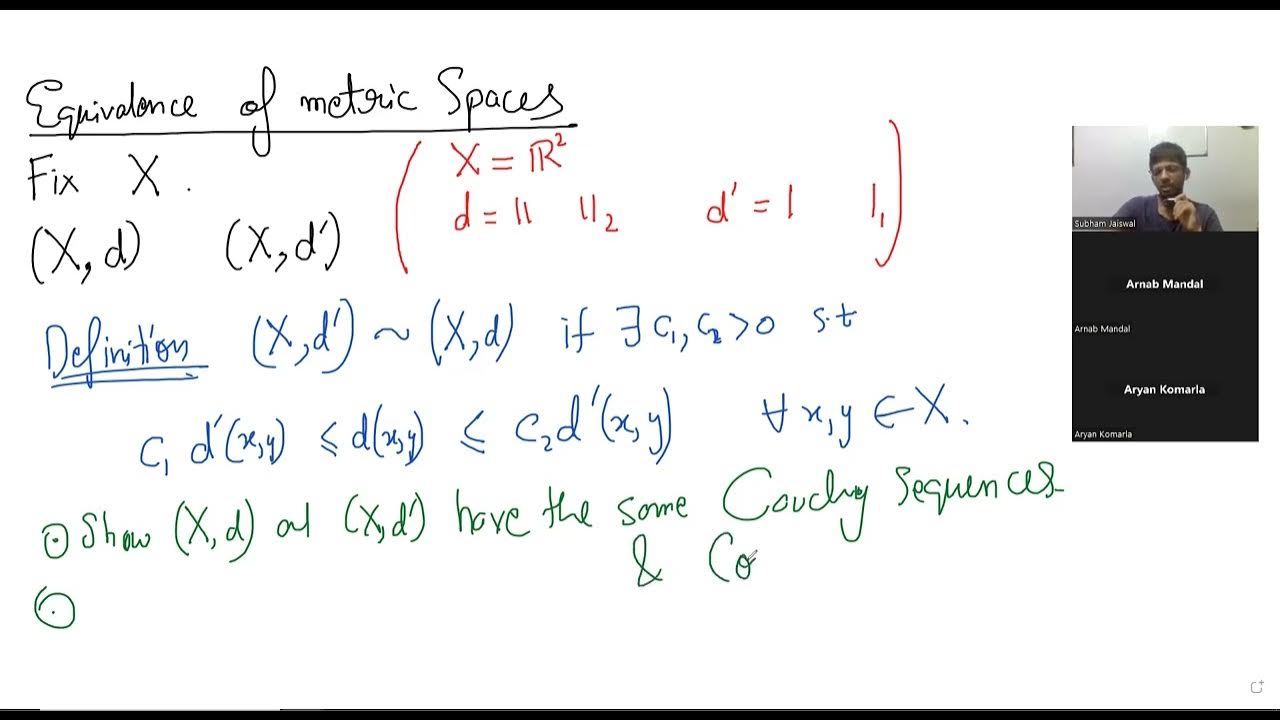 Equivalence of metric Spaces
Fix X.
( X = ℝ²
d = || ||₂ d' = | |₁ )
(X, d) (X, d')
Definition (X, d') ~ (X, d) if ∃ c₁, c₂ > 0 s.t
c₁ d'(x,y) ≤ d(x,y) ≤ c₂ d'(x,y) ∀ x,y ∈ X.
⊙ Show (X, d) and (X, d') have the same Cauchy sequences
& Co
⊙
Subham Jaiswal
Arnab Mandal
Arnab Mandal
Aryan Komarla
Aryan Komarla